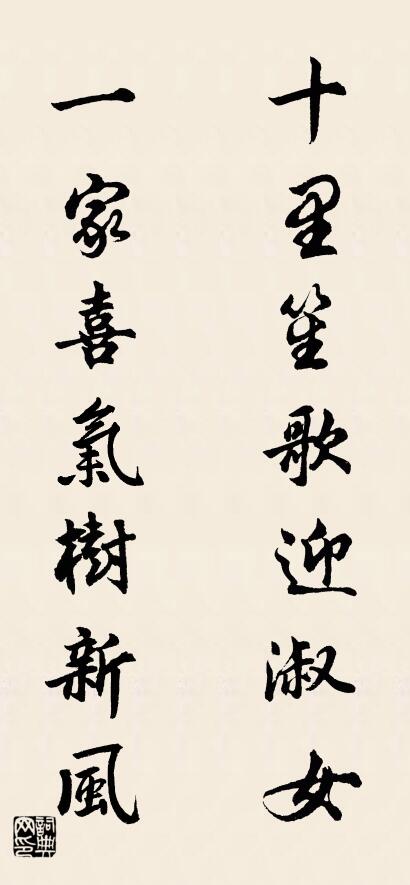 十里笙歌迎淑女
一家喜氣樹新風
詞典网印